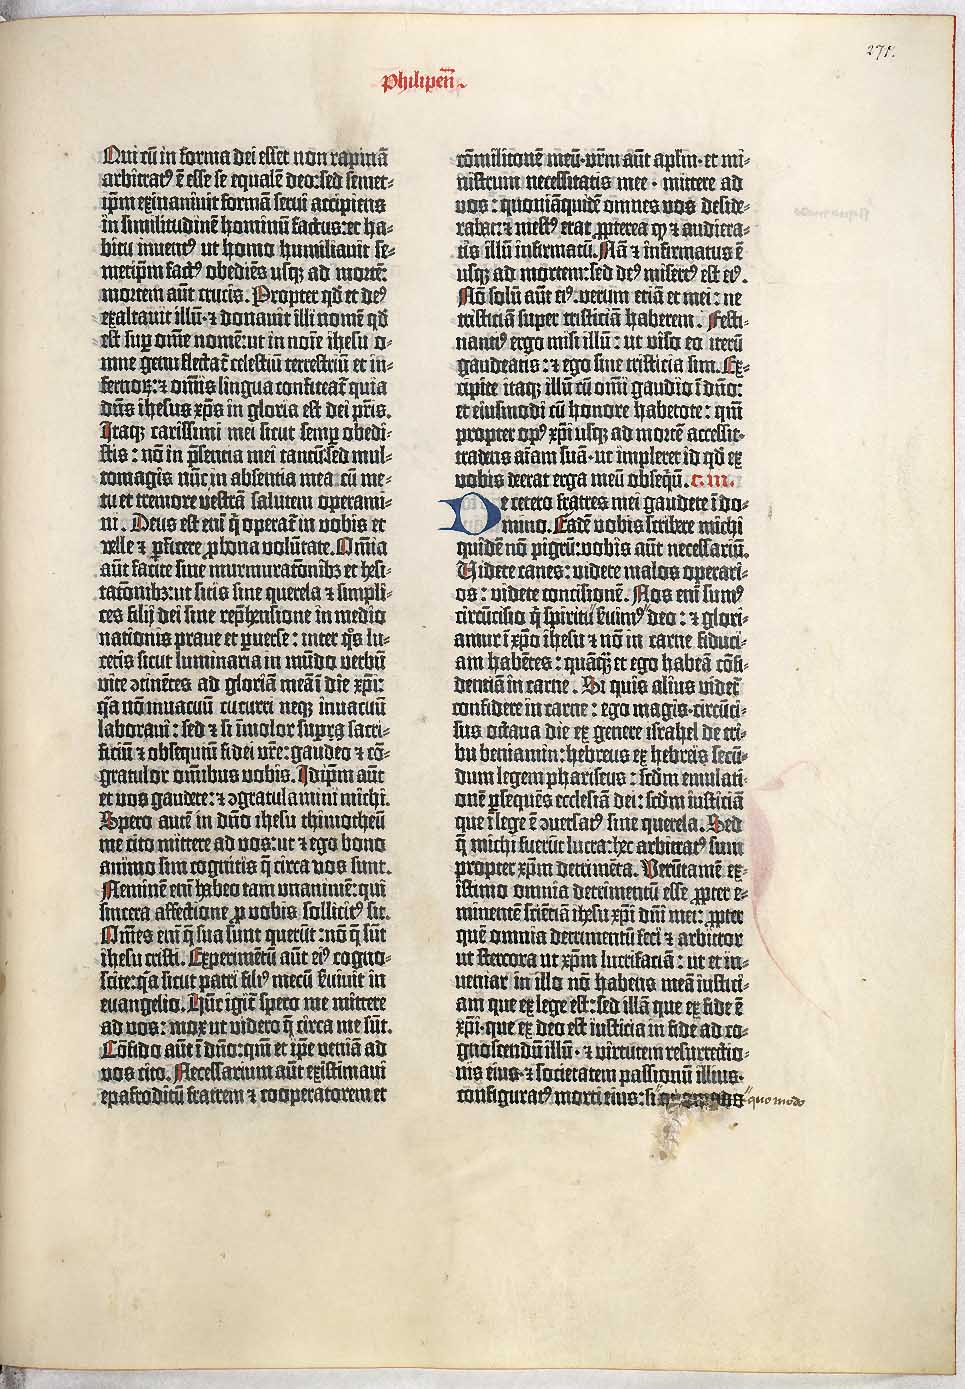 271.
Philipeñ
Qui cū in forma dei esset non rapinā
arbitratꝰ ē esse se equalē deo: sed semet-
ip̄m exinanivit formā servi accipiens
in similitudinē hominū factus: et ha-
bitu inventꝰ ut homo humiliavit se-
metip̄m factꝰ obediēs usqꝫ ad mortē:
mortem aūt crucis. Propter qd̄ et deꝰ
exaltavit illū· ⁊ donavit illi nomē qd̄
est sup̄ om̄e nomē: ut in noīe ihesu o-
mne genu flectat᷑ celestiū terrestriū et in-
fernoꝝ: ⁊ om̄is lingua confiteat᷑ quia
dn̄s ihesus xp̄s in gloria est dei pr̄is.
Itaqꝫ carissimi mei sicut semꝑ obedi-
stis: nō in p̄sentia mei tantū: sed mul-
tomagis nūc in absentia mea cū me-
tu et tremore vestrā salutem operami-
ni. Deus est eni᷑ q̄ operat᷑ in vobis et
velle ⁊ ꝑficere ꝓ bona volūtate. Om̄ia
aūt facite sine murmuratōnibꝫ et hesi-
tatōnibꝫ: ut sitis sine querela ⁊ simpli-
ces filij dei sine reprehensione in medio
nationis prave et ꝑverse: inter qͦs lu-
cetis sicut luminaria in mūdo verbū
vite ↄtinētes ad gloriā meā ī die xp̄i:
qͣ nō in vacuū cucurri neqꝫ in vacuū
laboravi: sed ⁊ si īmolor supra sacri-
ficiū ⁊ obsequiū fidei vr̄e: gaudeo ⁊ cō-
gratulor om̄ibus vobis. Idip̄m aūt
et vos gaudete: ⁊ ↄgratulamini michi.
Spero autē in dn̄o ihesu thimotheū
me cito mittere ad vos: ut ⁊ ego bono
animo sim cognitis q̄ circa vos sunt.
Neminē eni᷑ habeo tam unanimē: qui
sincera affectione ꝓ vobis sollicitꝰ sit.
Om̄es eni᷑ q̄ sua sunt querūt: nō q̄ sūt
ihesu cristi. Experimētū aūt eiꝰ cogno-
scite: qͣ sicut patri filiꝰ mecū servivit in
evangelio. Hūc igit᷑ spero me mittere
ad vos: mox ut videro q̄ circa me sūt.
Cōfido aūt ī dn̄o: qm̄ et ip̄e veniā ad
vos cito. Necessarium aūt existimavi
epafroditū fratrem ⁊ cooperatorem et
cōmilitonē meū· vr̄m aūt apl̄m· et mi-
nistrum necessitatis mee· mittere ad
vos: quoniāquidē omnes vos deside-
rabat: ⁊ mestꝰ erat ꝓpterea qꝫ ⁊ audiera-
tis illū infirmatū. Nā ⁊ infirmatus ē
usqꝫ ad mortem: sed deꝰ misertꝰ est eiꝰ.
Nō solū aūt eiꝰ· verum etiā et mei: ne
tristiciā super tristiciā haberem. Festi-
nantiꝰ ergo misi illū: ut viso eo iterū
gaudeatis: ⁊ ego sine tristicia sim. Ex-
cipite itaqꝫ illū cū om̄i gaudio ī dn̄o:
et eiusmodi cū honore habetote: qm̄
propter opꝰ xp̄i usqꝫ ad mortē accessit·
tradens aīam suā· ut impleret id qd̄ ex
vobis deerat erga meū obseqͥū. c. iii.
De cetero fratres mei gaudete ī do-
mino. Eadē vobis scribere michi
quidē nō pigrū: vobis aūt necessariū.
Videte canes: videte malos operari-
os: videte concisionē. Nos eni᷑ sumꝰ
circūcisio q̄ spiritu servimꝰ deo: ⁊ glori-
amur ī xp̄o ihesu ⁊ nō in carne fiduci-
am habētes: quāqꝫ et ego habeā cōfi-
dentiā in carne. Si quis alius videt᷑
confidere in carne: ego magis· circūci-
sus octava die ex genere israhel de tri-
bu beniamin: hebreus ex hebreis secū-
dum legem phariseus: scd̄m emulati-
onē ꝑsequēs ecclesiā dei: scd̄m iusticiā
que ī lege ē ↄversatꝰ sine querela. Sed
q̄ michi fuerūt lucra: hec arbitratꝰ sum
propter xp̄m detrimēta. Verūtamē ex-
istimo omnia detrimentū esse ꝓpter e-
minentē scientiā ihesu xp̄i dn̄i mei: ꝓpter
quē omnia detrimentū feci ⁊ arbitror
ut stercora ut xp̄m lucrifaciā: ut et in-
veniar in illo nō habens meā iustici-
am que ex lege est: sed illā que ex fide ē
xp̄i· que ex deo est iusticia in fide ad co-
gnoscendū illū· ⁊ virtutem resurrectio-
nis eius· ⁊ societatem passionū illius·
configuratꝰ morti eius: si
quomodo